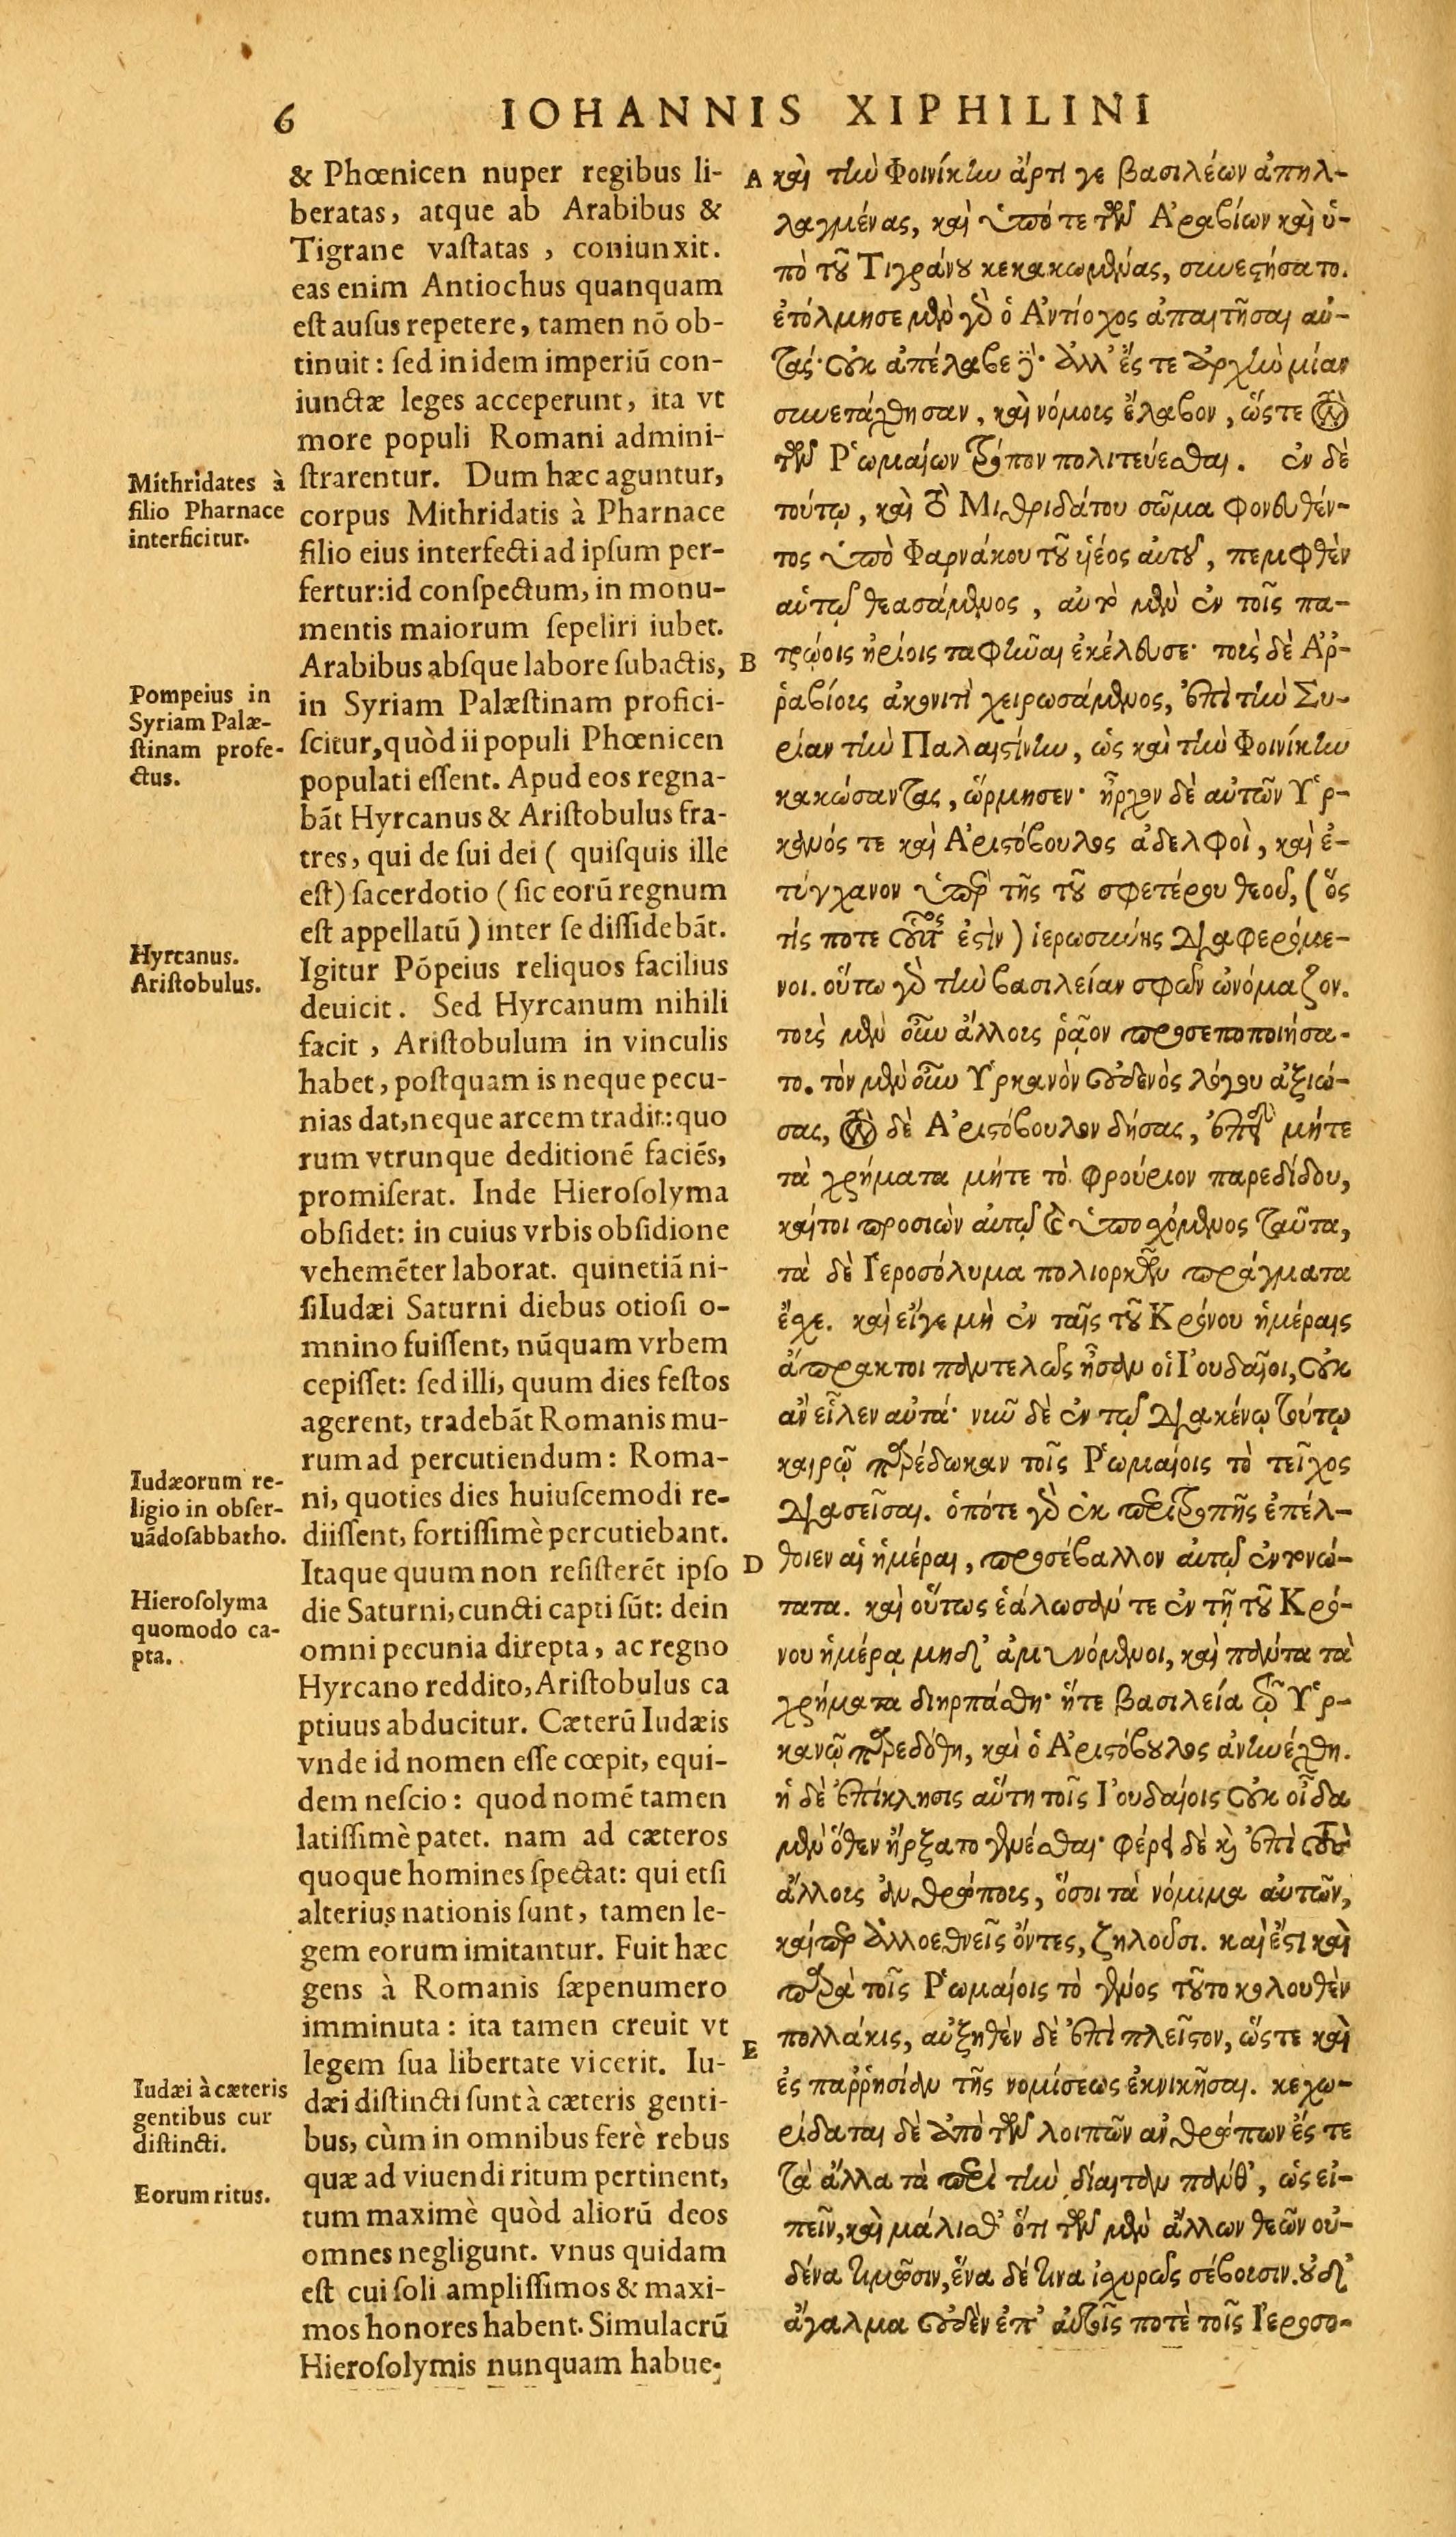 6 IOHANNIS XIPHILINI
& Phœnicen nuper regibus li-
beratas, atque ab Arabibus &
Tigrane vaſtatas , coniunxit.
eas enim Antiochus quanquam
eſt auſus repetere, tamen nō ob-
tinuit : ſed in idem imperiū con-
iunctæ leges acceperunt, ita vt
more populi Romani admini-
ſtrarentur. Dum hæc aguntur,
corpus Mithridatis à Pharnace
filio eius interfecti ad ipſum per-
fertur: id conſpectum, in monu-
mentis maiorum ſepeliri iubet.
Arabibus abſque labore ſubactis,
in Syriam Palæſtinam profici-
ſcitur, quòd ii populi Phœnicen
populati eſſent. Apud eos regna-
bāt Hyrcanus & Ariſtobulus fra-
tres, qui de ſui dei ( quiſquis ille
eſt) ſacerdotio (ſic eorū regnum
eſt appellatū ) inter ſe diſſidebāt.
Igitur Pōpeius reliquos facilius
deuicit. Sed Hyrcanum nihili
facit , Ariſtobulum in vinculis
habet, poſtquam is neque pecu-
nias dat, neque arcem tradit: quo
rum vtrunque deditionē faciēs,
promiſerat. Inde Hieroſolyma
obſidet: in cuius vrbis obſidione
vehemēter laborat. quinetiā ni-
ſi Iudæi Saturni diebus otioſi o-
mnino fuiſſent, nūquam vrbem
cepiſſet: ſed illi, quum dies feſtos
agerent, tradebāt Romanis mu-
rum ad percutiendum : Roma-
ni, quoties dies huiuſcemodi re-
diiſſent, fortiſſimè percutiebant.
Itaque quum non reſiſterēt ipſo
die Saturni, cuncti capti ſūt: dein
omni pecunia direpta, ac regno
Hyrcano reddito, Ariſtobulus ca
ptiuus abducitur. Cæterū Iudæis
vnde id nomen eſſe cœpit, equi-
dem neſcio : quod nomē tamen
latiſſimè patet. nam ad cæteros
quoque homines ſpectat: qui etſi
alterius nationis ſunt, tamen le-
gem eorum imitantur. Fuit hæc
gens à Romanis ſæpenumero
imminuta : ita tamen creuit vt
legem ſua libertate vicerit. Iu-
dæi diſtincti ſunt à cæteris genti-
bus, cùm in omnibus ferè rebus
quæ ad viuendi ritum pertinent,
tum maximè quòd aliorū deos
omnes negligunt. vnus quidam
eſt cui ſoli ampliſſimos & maxi-
mos honores habent. Simulacrū
Hieroſolymis nunquam habue-
Mithridates à
filio Pharnace
interficitur.
Pompeius in
Syriam Palæ-
ſtinam profe-
ctus.
Hyrcanus.
Ariſtobulus.
Iudæorum re-
ligio in obſer-
uādo ſabbatho.
Hieroſolyma
quomodo ca-
pta.
Iudæi à cæteris
gentibus cur
diſtincti.
Eorum ritus.
A
B
D
E
καὶ τὴν Φοινίκην ἄρτι γε βασιλέων ἀπηλ-
λαγμένας, καὶ ὑπό τε τῶν Ἀραβίων καὶ ὑ-
πὸ τοῦ Τιγράνου κεκακωμένας, συνεστήσατο.
ἐτόλμησε μὲν γὰρ ὁ Ἀντίοχος ἀπαιτῆσαι αὐ-
τάς· οὐκ ἀπέλαβε δέ· ἀλλ' ἔς τε ἀρχὴν μίαν
συνετάχθησαν, καὶ νόμοις ἔλαβον, ὥστε τὸν
τῶν Ῥωμαίων τρόπον πολιτεύεσθαι. ἐν δὲ
τούτῳ, καὶ τὸ Μιθριδάτου σῶμα φονευθέν-
τος ὑπὸ Φαρνάκου τοῦ υἱέος αὐτοῦ, πεμφθὲν
αὐτῷ θεασάμενος, αὐτὸ μὲν ἐν τοῖς πα-
τρῴοις ἠρίοις ταφῆναι ἐκέλευσε· τοὺς δὲ Ἀρ-
ραβίους ἀκονιτὶ χειρωσάμενος, ἐπὶ τὴν Συ-
ρίαν τὴν Παλαιστίνην, ὡς καὶ τὴν Φοινίκην
κακώσαντας, ὥρμησεν· ἦρχον δὲ αὐτῶν Ὑρ-
κανός τε καὶ Ἀριστόβουλος ἀδελφοὶ, καὶ ἐ-
τύγχανον ὑπὲρ τῆς τοῦ σφετέρου θεοῦ, (ὅς
τίς ποτε οὗτός ἐστὶν) ἱερωσύνης διαφερόμε-
νοι. οὕτω γὰρ τὴν βασιλείαν σφῶν ὠνόμαζον.
τοὺς μὲν οὖν ἄλλους ῥᾷον προσεποποιήσα-
το. τὸν μὲν οὖν Ὑρκανὸν οὐδενὸς λόγου ἀξιώ-
σας, τὸν δὲ Ἀριστόβουλον δήσας, ἐπεὶ μήτε
τὰ χρήματα μήτε τὸ φρούριον παρεδίδου,
καίτοι προσιὼν αὐτῷ καὶ ὑποσχόμενος ταῦτα,
τὰ δὲ Ἱεροσόλυμα πολιορκῶν πράγματα
ἔσχε. καὶ εἴγε μὴ ἐν ταῖς τοῦ Κρόνου ἡμέραις
ἄπρακτοι παντελῶς ἦσαν οἱ Ἰουδαῖοι, οὐκ
ἂν εἷλεν αὐτά· νῦν δὲ ἐν τῷ διακένῳ τούτῳ
καιρῷ παρέδωκαν τοῖς Ῥωμαίοις τὸ τεῖχος
διασεῖσαι. ὁπότε γὰρ ἐκ περιτροπῆς ἐπέλ-
θοιεν αἱ ἡμέραι, προσέβαλλον αὐτῷ ἐντονώ-
τατα. καὶ οὕτως ἑάλωσάν τε ἐν τῇ τοῦ Κρό-
νου ἡμέρᾳ μηδ' ἀμυνόμενοι, καὶ πάντα τὰ
χρήματα διηρπάσθη· ἥτε βασιλεία τῷ Ὑρ-
κανῷ παρεδόθη, καὶ ὁ Ἀριστόβουλος ἀνηνέχθη.
ἡ δὲ ἐπίκλησις αὕτη τοῖς Ἰουδαίοις οὐκ οἶδα
μὲν ὅθεν ἤρξατο γενέσθαι· φέρει δὲ καὶ ἐπὶ τοὺς
ἄλλους ἀνθρώπους, ὅσοι τὰ νόμιμα αὐτῶν,
καίπερ ἀλλοεθνεῖς ὄντες, ζηλοῦσι. καὶ ἔστι καὶ
παρὰ τοῖς Ῥωμαίοις τὸ γένος τοῦτο κολουθὲν
πολλάκις, αὐξηθὲν δὲ ἐπὶ πλεῖστον, ὥστε καὶ
ἐς παῤῥησίαν τῆς νομίσεως ἐκνικῆσαι. κεχω-
ρίδαται δὲ ἀπὸ τῶν λοιπῶν ἀνθρώπων ἔς τε
τὰ ἄλλα τὰ περὶ τὴν δίαιταν πάνθ', ὡς εἰ-
πεῖν, καὶ μάλισθ' ὅτι τῶν μὲν ἄλλων θεῶν οὐ-
δένα τιμῶσιν, ἕνα δέ τινα ἰσχυρῶς σέβουσιν. οὐδ'
ἄγαλμα οὐδὲν ἐπ' αὐτοῖς ποτὲ τοῖς Ἱεροσο-